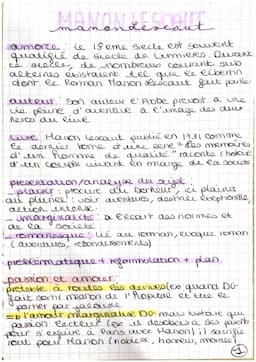 MANON LESCAUT
manon lescaut
amorce : le 18eme siecle est souvent
qualifié de siecle de lumières. Durant
ce siècle, de nombreux courants sub
alternes existaient tel que le libertin
dont le Roman Manon lescaut fait partie
auteur : Son auteur l'Abbé prevost a une
vie pleine d'aventure à l'image des
heros du livre
livre : Manon lescaut publié en 1731 comme
le dernier tome d'une serie "les memoires
d'un homme de qualité" raconte l'histoire
d'un couple vivant en marge de la société
présentation/analyse du sujet :
plaisir : procure du bonheur, ici plaisirs
au pluriel : voir aventures, destinée exceptionnelle,
action intense
marginalité : à l'écart des normes et
de la société
romanesque : lié au roman, evoque roman
(aventures, rebondissements)
problématique + reformulation + plan
passion et amour :
pretexte à toutes les derives (ex quand DG
fait sortir manon de l'Hopital et tue le
portier par
l'amour marginalise DG mais surtout
passion lecteur (ex il desobeit à ses parents
pour s'enfuire à Paris avec Manon) il sacrifie
tout pour Manon (noblesse, honneur, morale)
1